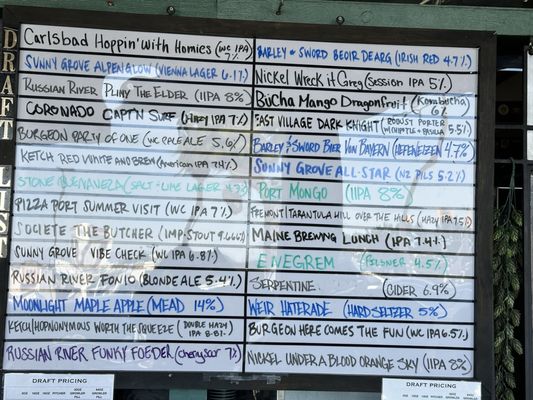 DRAFT LIST
Carlsbad Hoppin' with Homies (WC IPA 7%)
SUNNY GROVE ALPENGLOW (VIENNA LAGER 6.1%)
RUSSIAN RIVER PLINY THE ELDER (IIPA 8%)
CORONADO CAPT'N SURF (HAZY IPA 7%)
BURGEON PARTY OF ONE (WC PALE ALE 5.6%)
KETCH RED WHITE AND BREW (American IPA 7.4%)
STONE BUENAVEZA (SALT-LIME LAGER 4.7%)
PIZZA PORT SUMMER VISIT (WC IPA 7%)
SOCIETE THE BUTCHER (IMP. STOUT 9.666%)
SUNNY GROVE VIBE CHECK (WC IPA 6.8%)
RUSSIAN RIVER FONIO (BLONDE ALE 5.4%)
MOONLIGHT MAPLE APPLE (MEAD 14%)
KETCH/HOPNONYMOUS WORTH THE SQUEEZE (DOUBLE HAZY IPA 8.8%)
RUSSIAN RIVER FUNKY FOEDER (cherry sour 7%)
BARLEY & SWORD BEOIR DEARG (IRISH RED 4.7%)
Nickel Wreck it Greg (Session IPA 5%)
Bücha Mango Dragonfruit (Kombucha 6%)
EAST VILLAGE DARK KNIGHT (ROBUST PORTER W/CHIPOTLE + 5.5%)
BARLEY & SWORD BIER VON BAYERN (HEFEWEIZEN 4.7%)
SUNNY GROVE ALL-STAR (NZ PILS 5.2%)
PORT MONGO (IIPA 8%)
FREMONT/TARANTULA HILL OVER THE HILLS (HAZY IPA 7.5%)
MAINE BREWING LUNCH (IPA 7.4%)
ENEGREM (PILSNER 4.5%)
SERPENTINE (CIDER 6.9%)
WEIR HATERADE (HARD SELTZER 5%)
BURGEON HERE COMES THE FUN (WC IPA 6.5%)
NICKEL UNDER A BLOOD ORANGE SKY (IIPA 8%)
DRAFT PRICING
DRAFT PRICING